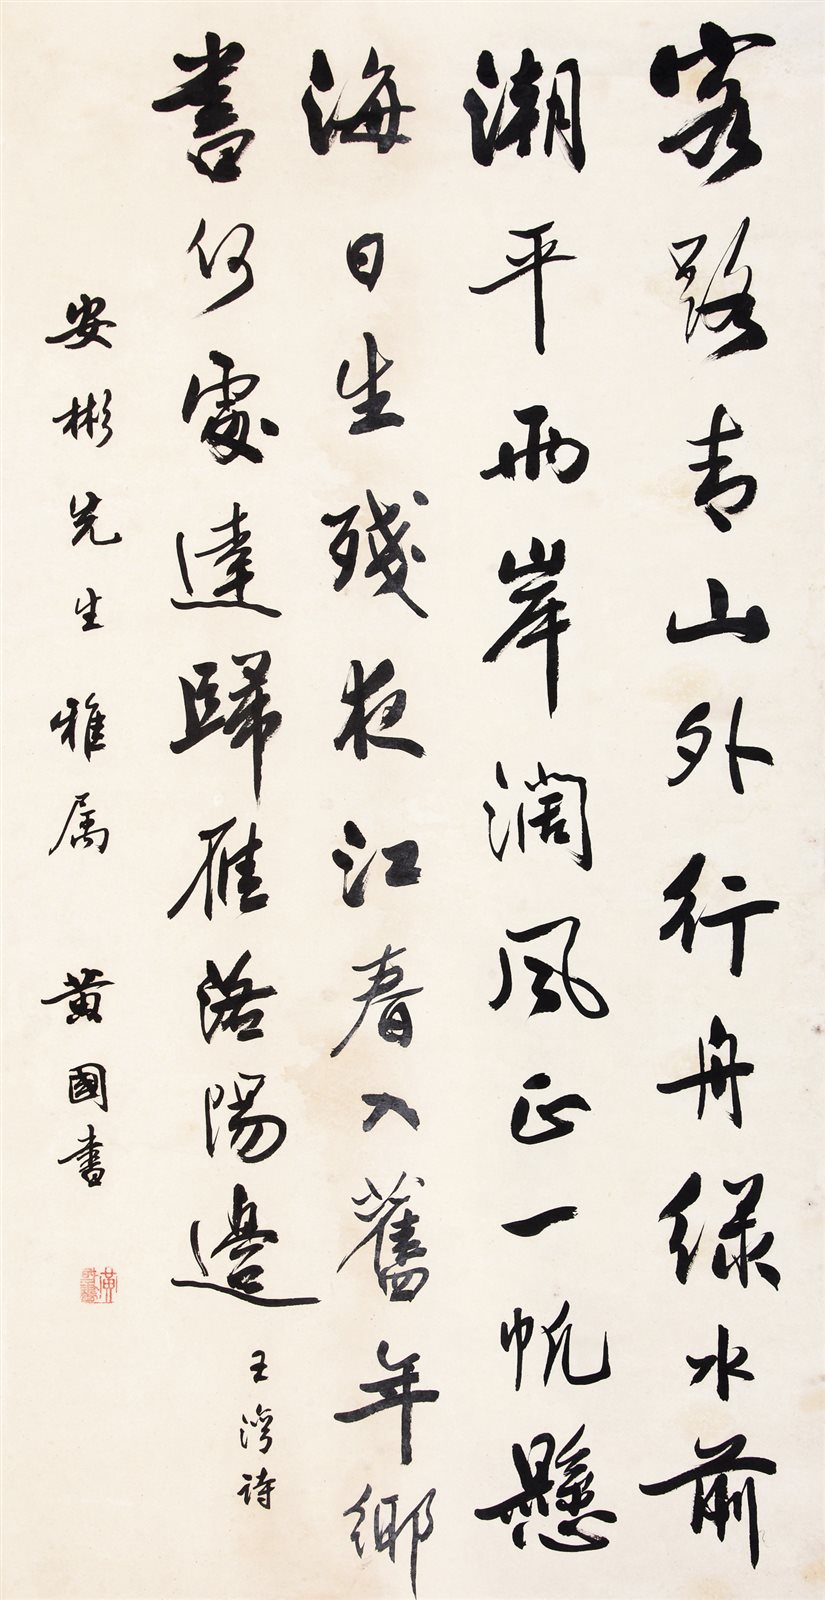 客路青山外行舟綠水前
潮平兩岸濶風正一帆懸
海日生殘夜江春入舊年鄉
書何處達歸雁洛陽邊
王灣詩
安彬先生雅属 黃國書